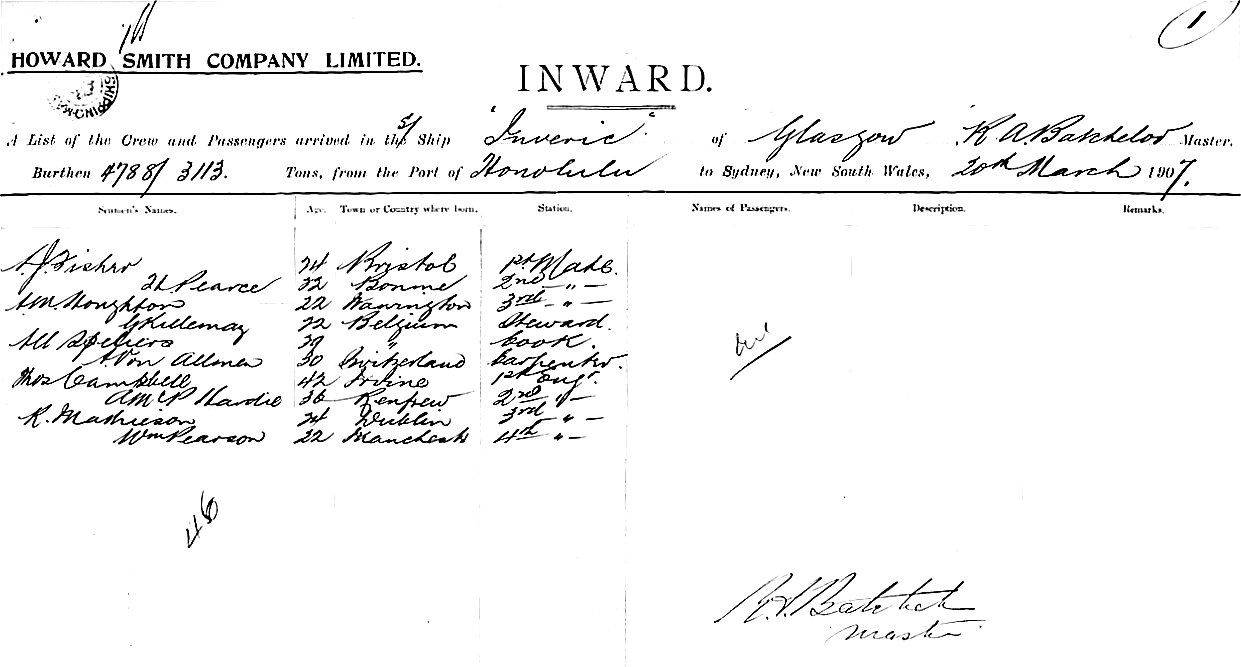 1
HOWARD SMITH COMPANY LIMITED.
INWARD.
A List of the Crew and Passengers arrived in the S/ Ship "Inveric" of Glasgow K. A. Batchelor Master.
Burthen 4788/3113. Tons, from the Port of Honolulu to Sydney, New South Wales, 20th March 1907.
Seamen's Names. Age. Town or Country where born. Station. Names of Passengers. Description. Remarks.
A. J. Fisher 24 Bristol 1st Mate.
Pearce 32 2nd " —
A. M. Houghton 22 Warrington 3rd — " —
Belgium Steward.
39 " Cook.
A. Von Allmen 30 Switzerland Carpenter.
Thos Campbell 42 Irvine 1st Engr.
A McP Hardie 36 Renfrew 2nd " —
R. Mathieson 24 Dublin 3rd " —
Wm Pearson 22 Manchester 4th " —
nil
46
Master